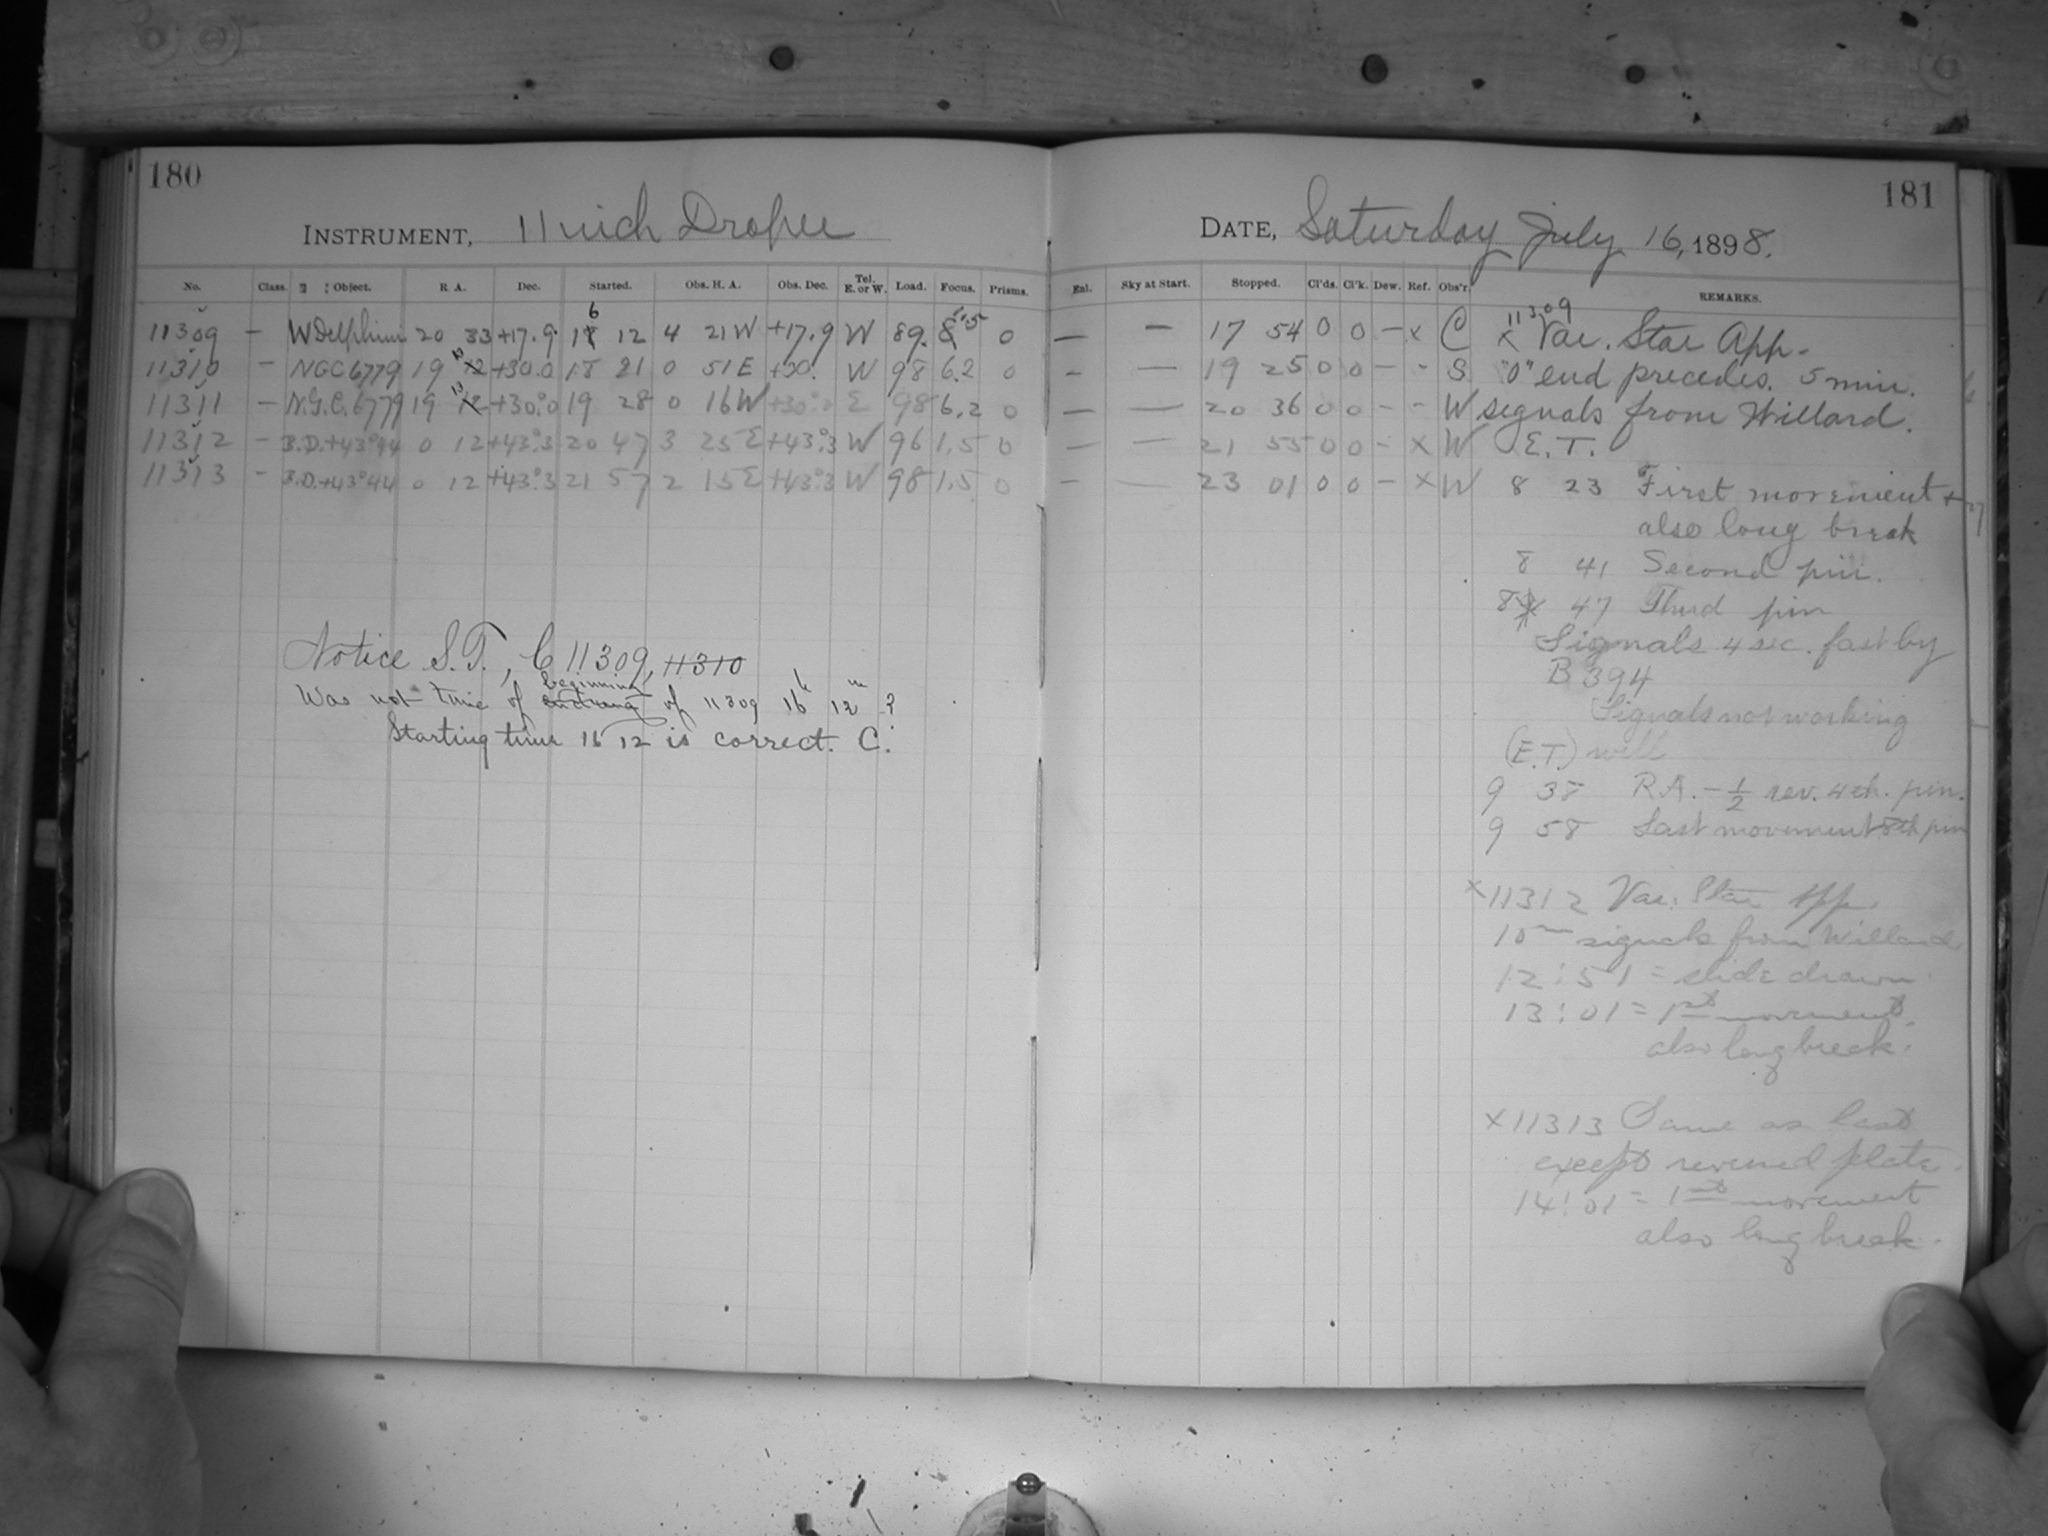 180
INSTRUMENT, 11 inch Draper
No. Class. Object. R. A. Dec. Started. Obs. H. A. Obs. Dec. Tel. E. or W. Load. Focus. Prisms.
11309 — W Delphini 20 33 +17.9 16 12 4 21 W +17.9 W 89. 0
11310 — NGC 6779 19 +30.0 18 21 0 51 E +30. W 98 6.2 0
11311 — N.G.C. 6779 19 +30°.0 19 28 0 16 W +30°.0 E 98 6.2 0
11312 — B.D.+43°44 0 12 +43°.3 20 47 3 25 E +43°.3 W 96 1.5 0
11313 — B.D.+43°44 0 12 +43°.3 21 57 2 15 E +43°.3 W 98 1.5 0
Notice S.T., C 11309, 11310
Was not time of beginning of 11309 16h 12m ?
Starting time 16 12 is correct. C.
181
DATE, Saturday July 16, 1898.
Enl. Sky at Start. Stopped. Cl'ds. Cl'k. Dew. Ref. Obs'r. REMARKS.
— — 17 54 0 0 — x C x 11309 Var. Star App.
- — 19 25 0 0 — - S "0" end precedes. 5 min.
— — 20 36 0 0 - - W signals from Willard.
— — 21 55 0 0 - x W E.T.
— — 23 01 0 0 - x W 8 23 First movement +
also long break
8 41 Second pin.
8 47 Third pin
Signals 4 sec. fast by
B 394
Signals not working
(E.T.) well
9 38 R.A. - 1/2 rev. 4th. pin.
9 58 Last movement 8th pin
x 11312 Var. Star App.
10m signals from Willard
12:51 = slide drawn
13:01 = 1st movement,
also long break.
x 11313 Same as last
except reversed plate.
14:01 = 1st movement
also long break.